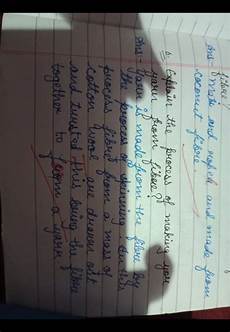 fibre
Ans- Mats and ropes and made from
coconut fibre.
Q. Explain the process of making you
yarn from fibre?
Ans- Yarn is made from the fibre by
the process of spinning. In this
process fibres from a mass of
cotton wool are drawn out
and twisted this bring the fibre
together to form a yarn